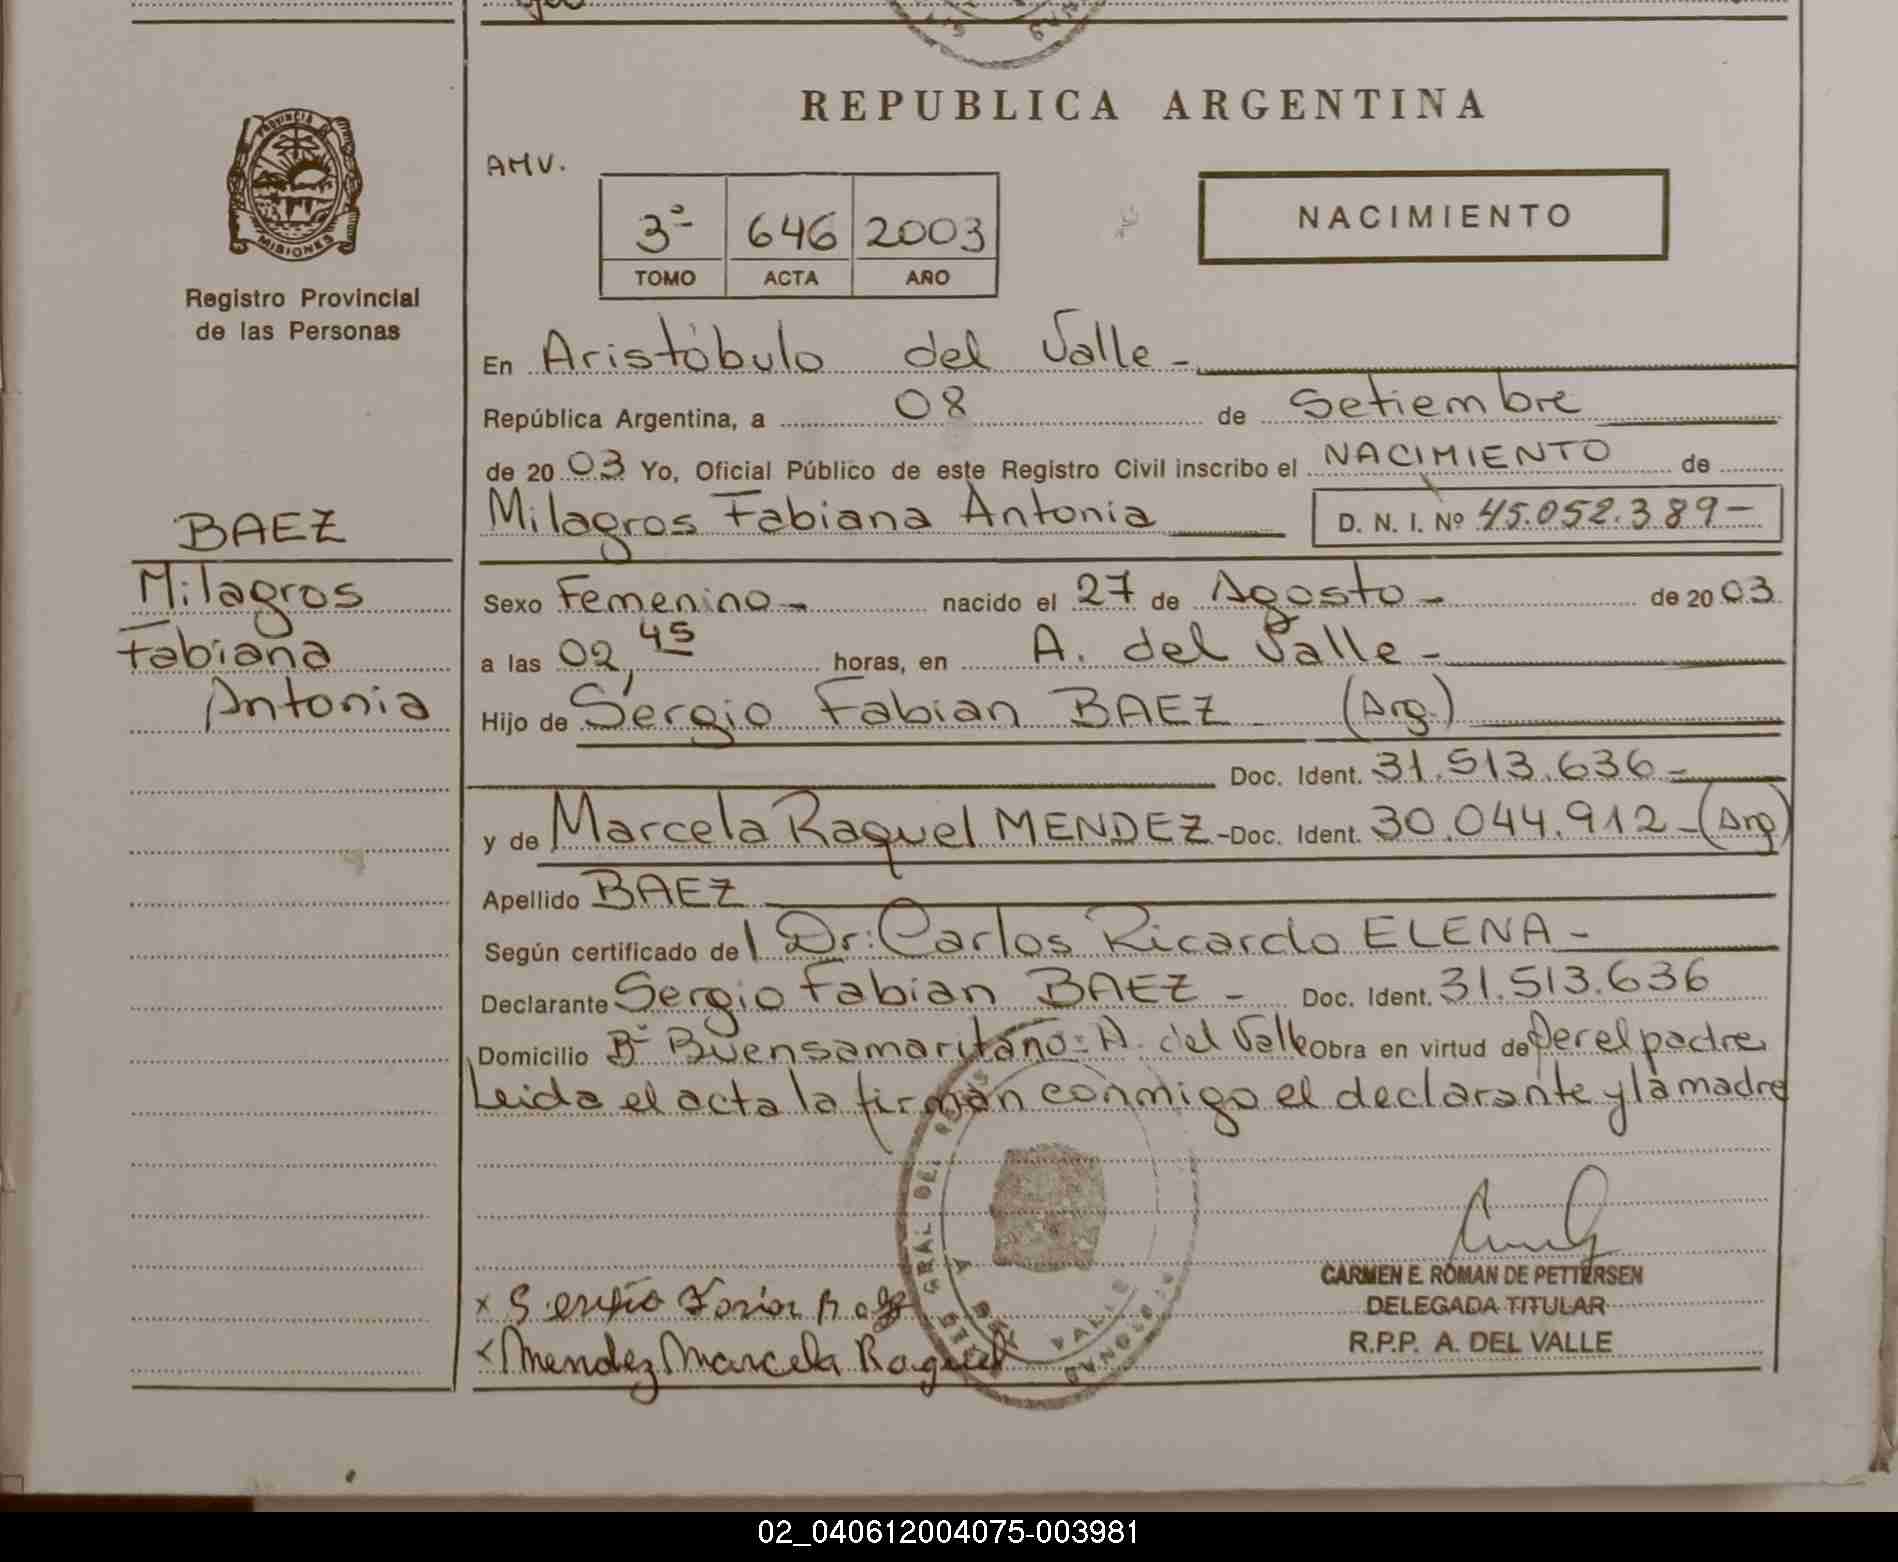 REPUBLICA ARGENTINA
AMV.
3º 646 2003
TOMO ACTA AÑO
NACIMIENTO
PROVINCIA D
MISIONES
Registro Provincial
de las Personas
BAEZ
Milagros
Fabiana
Antonia
En Aristóbulo del Valle -
República Argentina, a 08 de Setiembre
de 2003 Yo, Oficial Público de este Registro Civil inscribo el NACIMIENTO de
Milagros Fabiana Antonia D. N. I. Nº 45.052.389-
Sexo Femenino - nacido el 27 de Agosto - de 2003
a las 02,45 horas, en A. del Valle -
Hijo de Sergio Fabian BAEZ (Arg.)
Doc. Ident. 31.513.636 -
y de Marcela Raquel MENDEZ - Doc. Ident. 30.044.912 - (Arg)
Apellido BAEZ
Según certificado del Dr: Carlos Ricardo ELENA -
Declarante Sergio Fabian BAEZ - Doc. Ident. 31.513.636
Domicilio Bº Buensamaritano - A. del Valle Obra en virtud de Ser el padre
Leida el acta la firman conmigo el declarante y la madre
CARMEN E. ROMAN DE PETTERSEN
DELEGADA TITULAR
R.P.P. A. DEL VALLE
x Sergio Favian Baez
x Mendez Marcela Raquel
GRAL DEL
VALLE
02_040612004075-003981